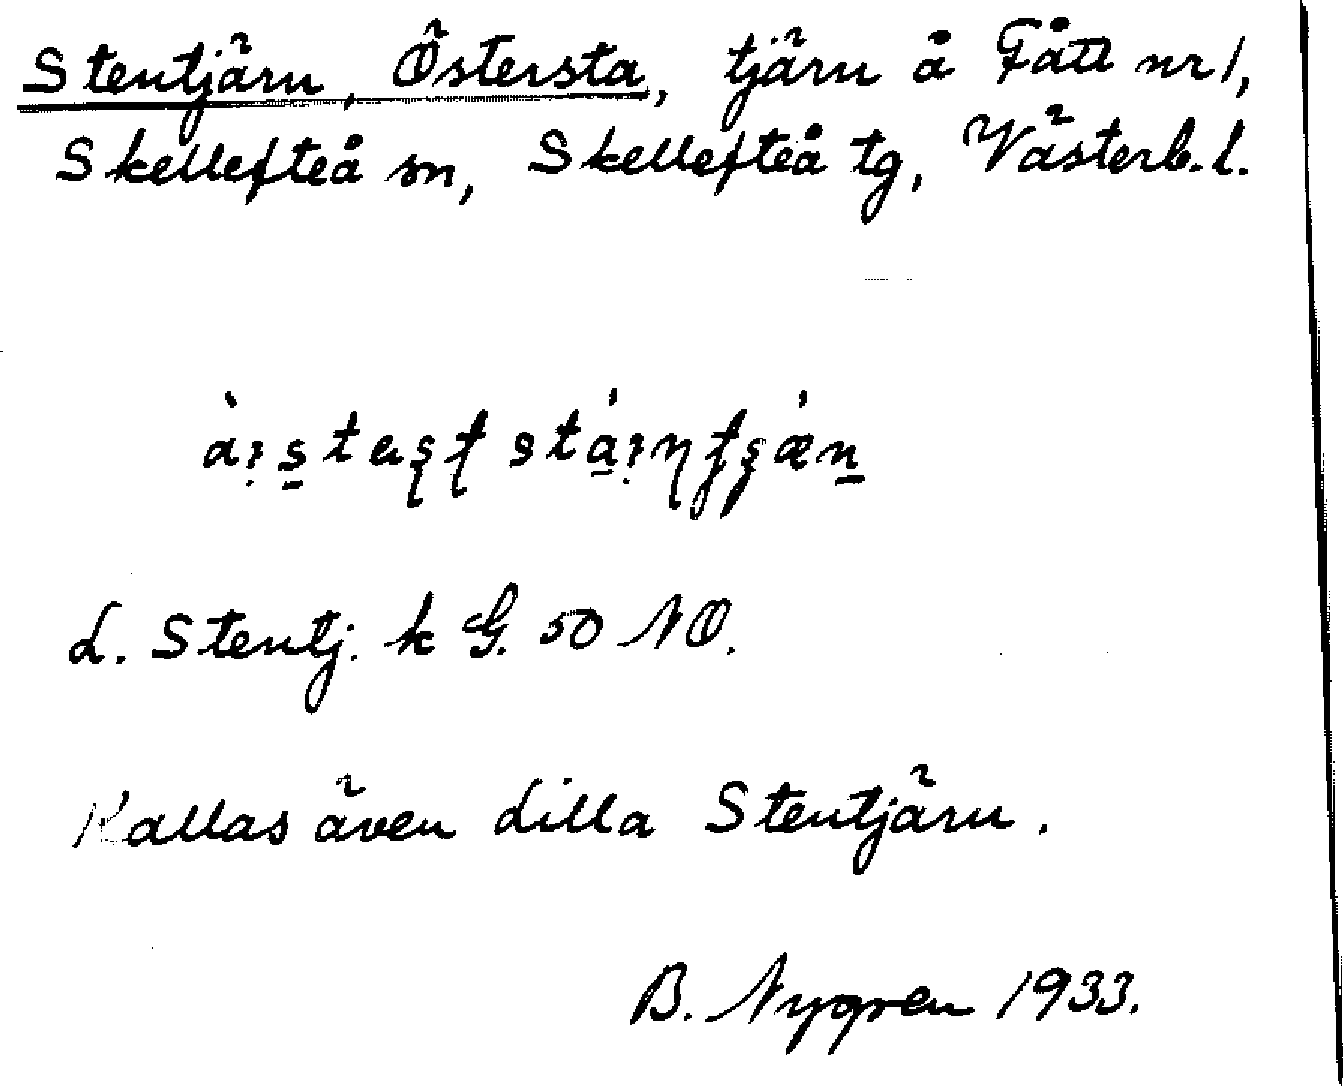 Stentjärn, Östersta, tjärn å Fått nr 1,
Skellefteå sn, Skellefteå tg, Västerb. l.
L. Stentj. k G. 50 NO.
Kallas även Lilla Stentjärn.
B. Nygren 1933.